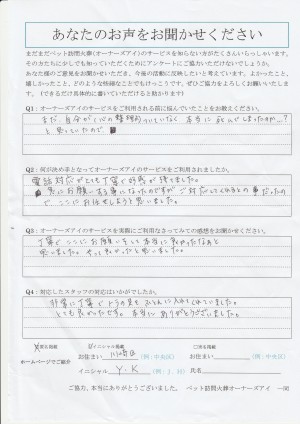 あなたのお声をお聞かせください
まだまだペット訪問火葬（オーナーズアイ）のサービスを知らない方がたくさんいらっしゃいます。
そのカたちに少しでも知っていただくためにアンケートにご協力いただけないでしょうか。
あなた様のご意見をお聞かせいただき、今後の活動に反映したいと考えています。よかったこと、
嬉しかったこと、どのような些細なことでもけっこうです。ぜひご協力をよろしくお願いいたします。
（できるだけ具体的に書いていただけると助かります）
Q1：オーナーズアイのサービスをご利用される前に悩んでいたことをお教えください。
まだ、自分が心の整理がついていなく 本当に死んでしまったのか…？
と思っていたので
Q2：何が決め手となってオーナーズアイのサービスをご利用されましたか。
電話対応がとても丁寧で好感が持てました。
急にお願いする事になったのですが ご対応してくれるとの事だったの
で、ここにお任せしようと思いました。
Q3：オーナーズアイのサービスを実際にご利用なさってみての感想をお聞かせください
丁寧で ここにお願いをして本当に良かったなぁと
思いました。
Q4：対応したスタッフの対応はいかがでしたか。
非常に丁寧で
とても良かったです。本当にありがとうございました。
ホームページでご紹介
イニシャル掲載
お住まい 川崎区 （例：中央区）
イニシャル Y・K （例：J．H）
お住まい （例：中央区）
氏名
ご協力、本当にありがとうございました。 ペット訪問火葬オーナーズアイ 一同